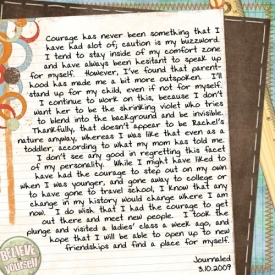 Courage has never been something that I
have had alot of; caution is my buzzword.
I tend to stay inside of my comfort zone
and have always been hesitant to speak up
for myself. However, I've found that parent-
hood has made me a bit more outspoken. I'll
stand up for my child, even if not for myself.
I continue to work on this, because I don't
want her to be the shrinking violet who tries
to blend into the background and be invisible.
Thankfully, that doesn't appear to be Rachel's
nature anyway, whereas I was like that even as a
toddler, according to what my mom has told me.
I don't see any good in regretting this facet
of my personality. While I might have liked to
have had the courage to step out on my own
when I was younger, and gone away to college or
to have gone to travel school, I know that any
change in my history would change where I am
now. I do wish that I had the courage to get
out there and meet new people. I took the
plunge and visited a ladies' class a week ago, and
hope that I will be able to open up to new
friendships and find a place for myself.
Journaled
3.10.2009
BELIEVE
in
YOURSELF